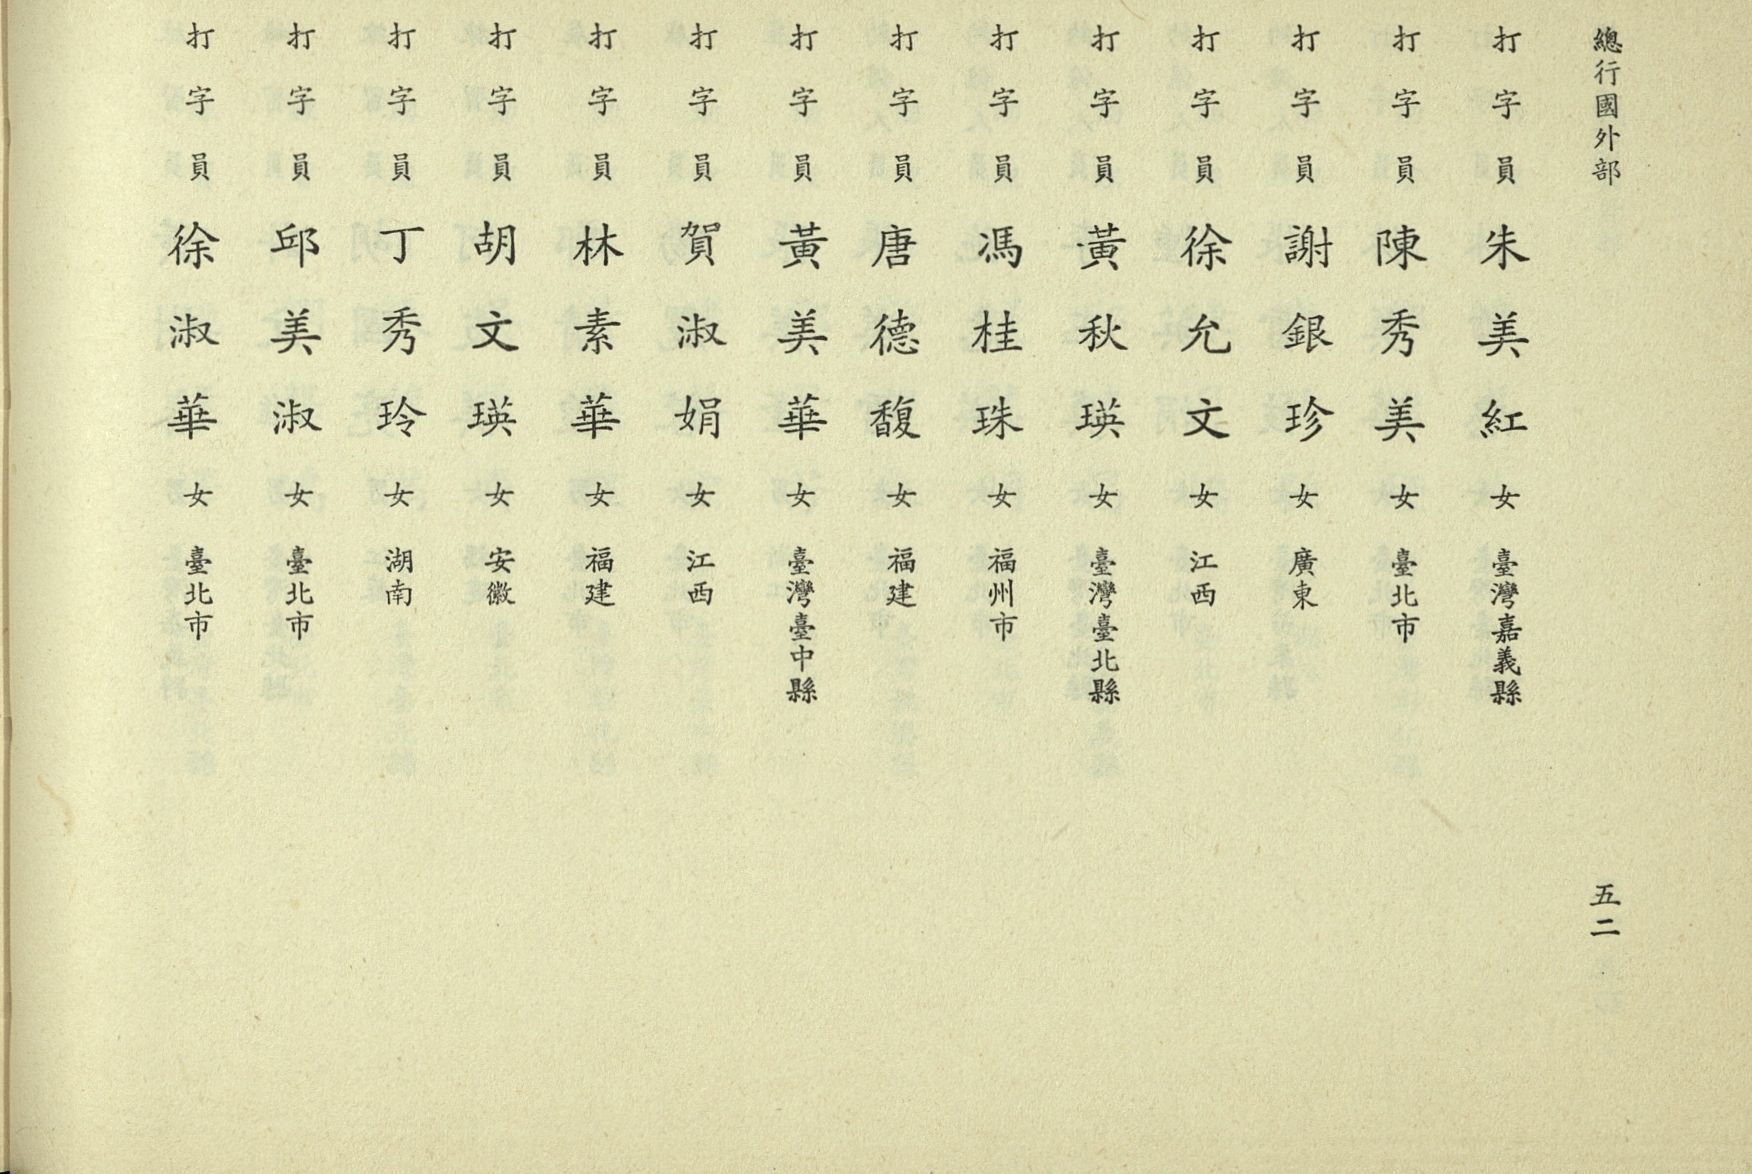 總行國外部
五二
打字員 朱美紅 女 臺灣嘉義縣
打字員 陳秀美 女 臺北市
打字員 謝銀珍 女 廣東
打字員 徐允文 女 江西
打字員 黃秋瑛 女 臺灣臺北縣
打字員 馮桂珠 女 福州市
打字員 唐德馥 女 福建
打字員 黃美華 女 臺灣臺中縣
打字員 賀淑娟 女 江西
打字員 林素華 女 福建
打字員 胡文瑛 女 安徽
打字員 丁秀玲 女 湖南
打字員 邱美淑 女 臺北市
打字員 徐淑華 女 臺北市